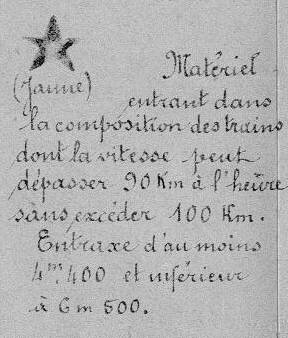 Matériel
(Jaune) entrant dans
la composition des trains
dont la vitesse peut
dépasser 90 Km à l'heure
sans excéder 100 Km.
Entraxe d'au moins
4m,400 et inférieur
à 6m 500.